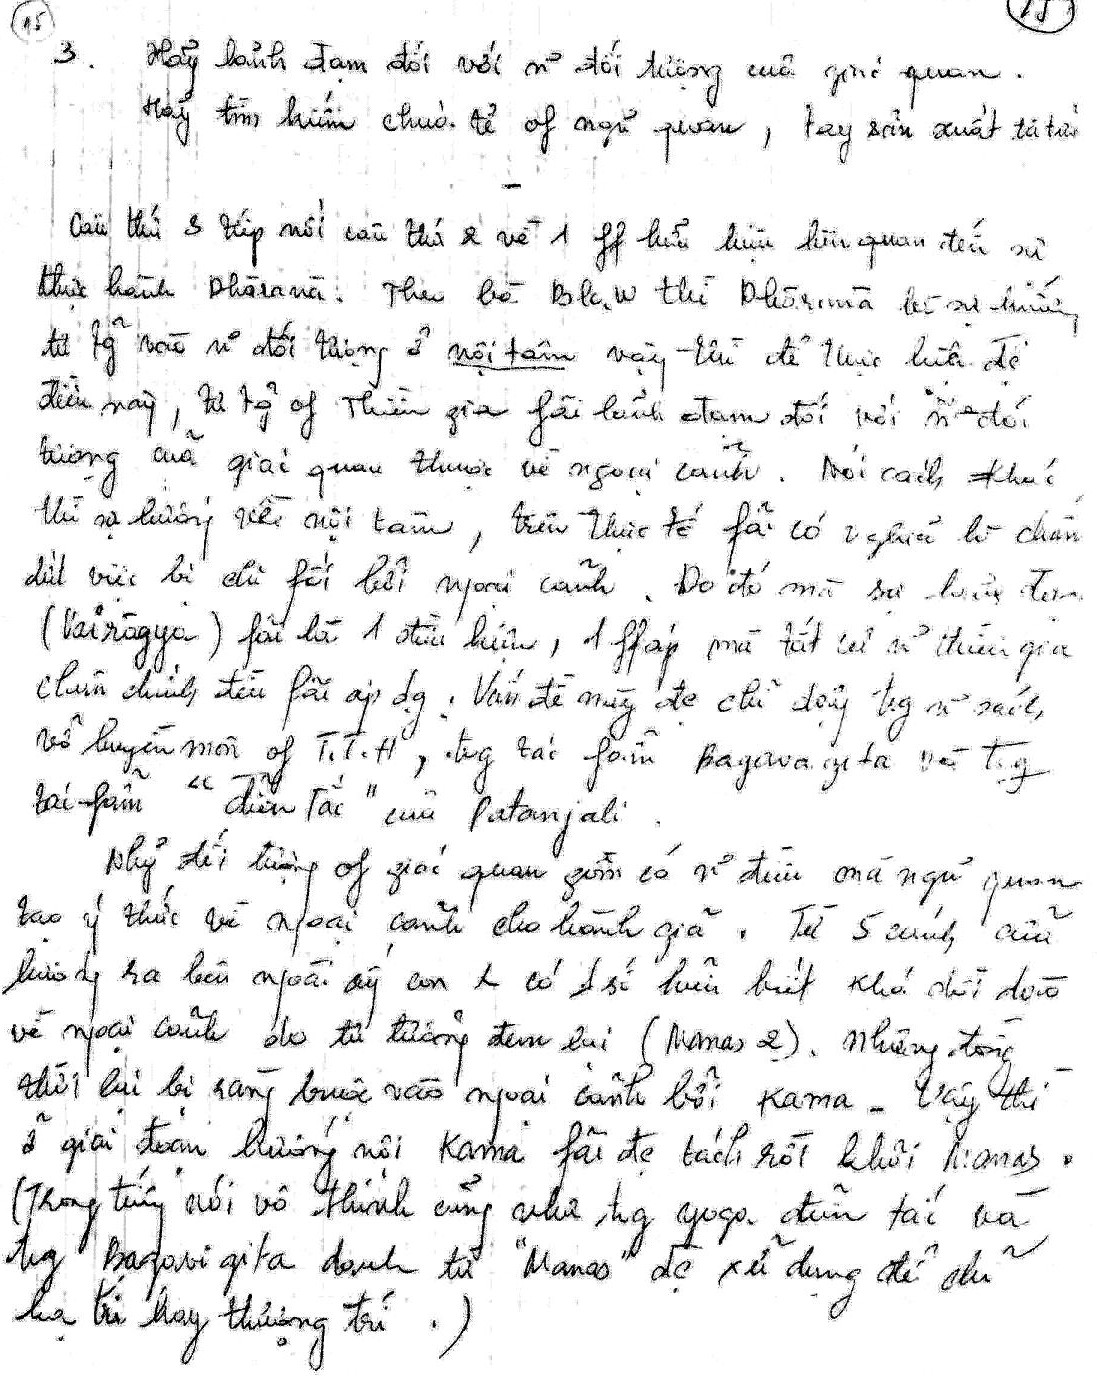 15 15
3. Hãy lảnh đạm đối với n~ đối tượng của giác quan.
Hãy tìm kiếm chúa tể of ngũ quan, tay sản xuất tư tưởng
Câu thứ 3 tiếp nối câu thứ 2 về 1 ff hữu hiệu liên quan đến sự
thực hành Dhāranā. Theo bà Bla.W thì Dhāranā là sự hướng
tư tg vào n~ đối tượng ở nội tâm vậy thì để thực hiện đc
điều này, tư tg of Thiền gia fải lảnh đạm đối với n~ đối
tượng của giác quan thuộc về ngoại cảnh. Nói cách khác
thì sự hướng về nội tâm, trên thực tế fải có nghĩa là chấm
dứt việc bị chi fối bởi ngoại cảnh. Do đó mà sự lảnh đạm
(Vairāgya) fải là 1 điều kiện, 1 ffáp mà tất cả n~ thiền gia
chân chính đều fải áp dg. Vấn đề này đc chỉ dạy trg n~ sách
về luyện môn of T.T.H, trg tác fẩm Bagavagita và trg
tác fẩm "điển Tắc" của Patanjali.
Nhữ đối tượng of giác quan gồm có n~ điều mà ngũ quan
tạo ý thức về ngoại cảnh cho hành giả. Từ 5 cánh cửa
hướng ra bên ngoài ấy con có 1 số hiểu biết khá dồi dào
về ngoại cảnh do tư tưởng đem lại (Manas 2). Nhưng đồng
thời lại bị ràng buộc vào ngoại cảnh bởi Kama - Vậy thì
ở giai đoạn hướng nội Kama fải đc tách rời khỏi Manas.
(Trong tiếng nói vô thinh cũng như trg yoga điển tắc và
trg Bagavigita danh từ "Manas" đc xử dụng để chỉ
hạ trí hay thượng trí.)